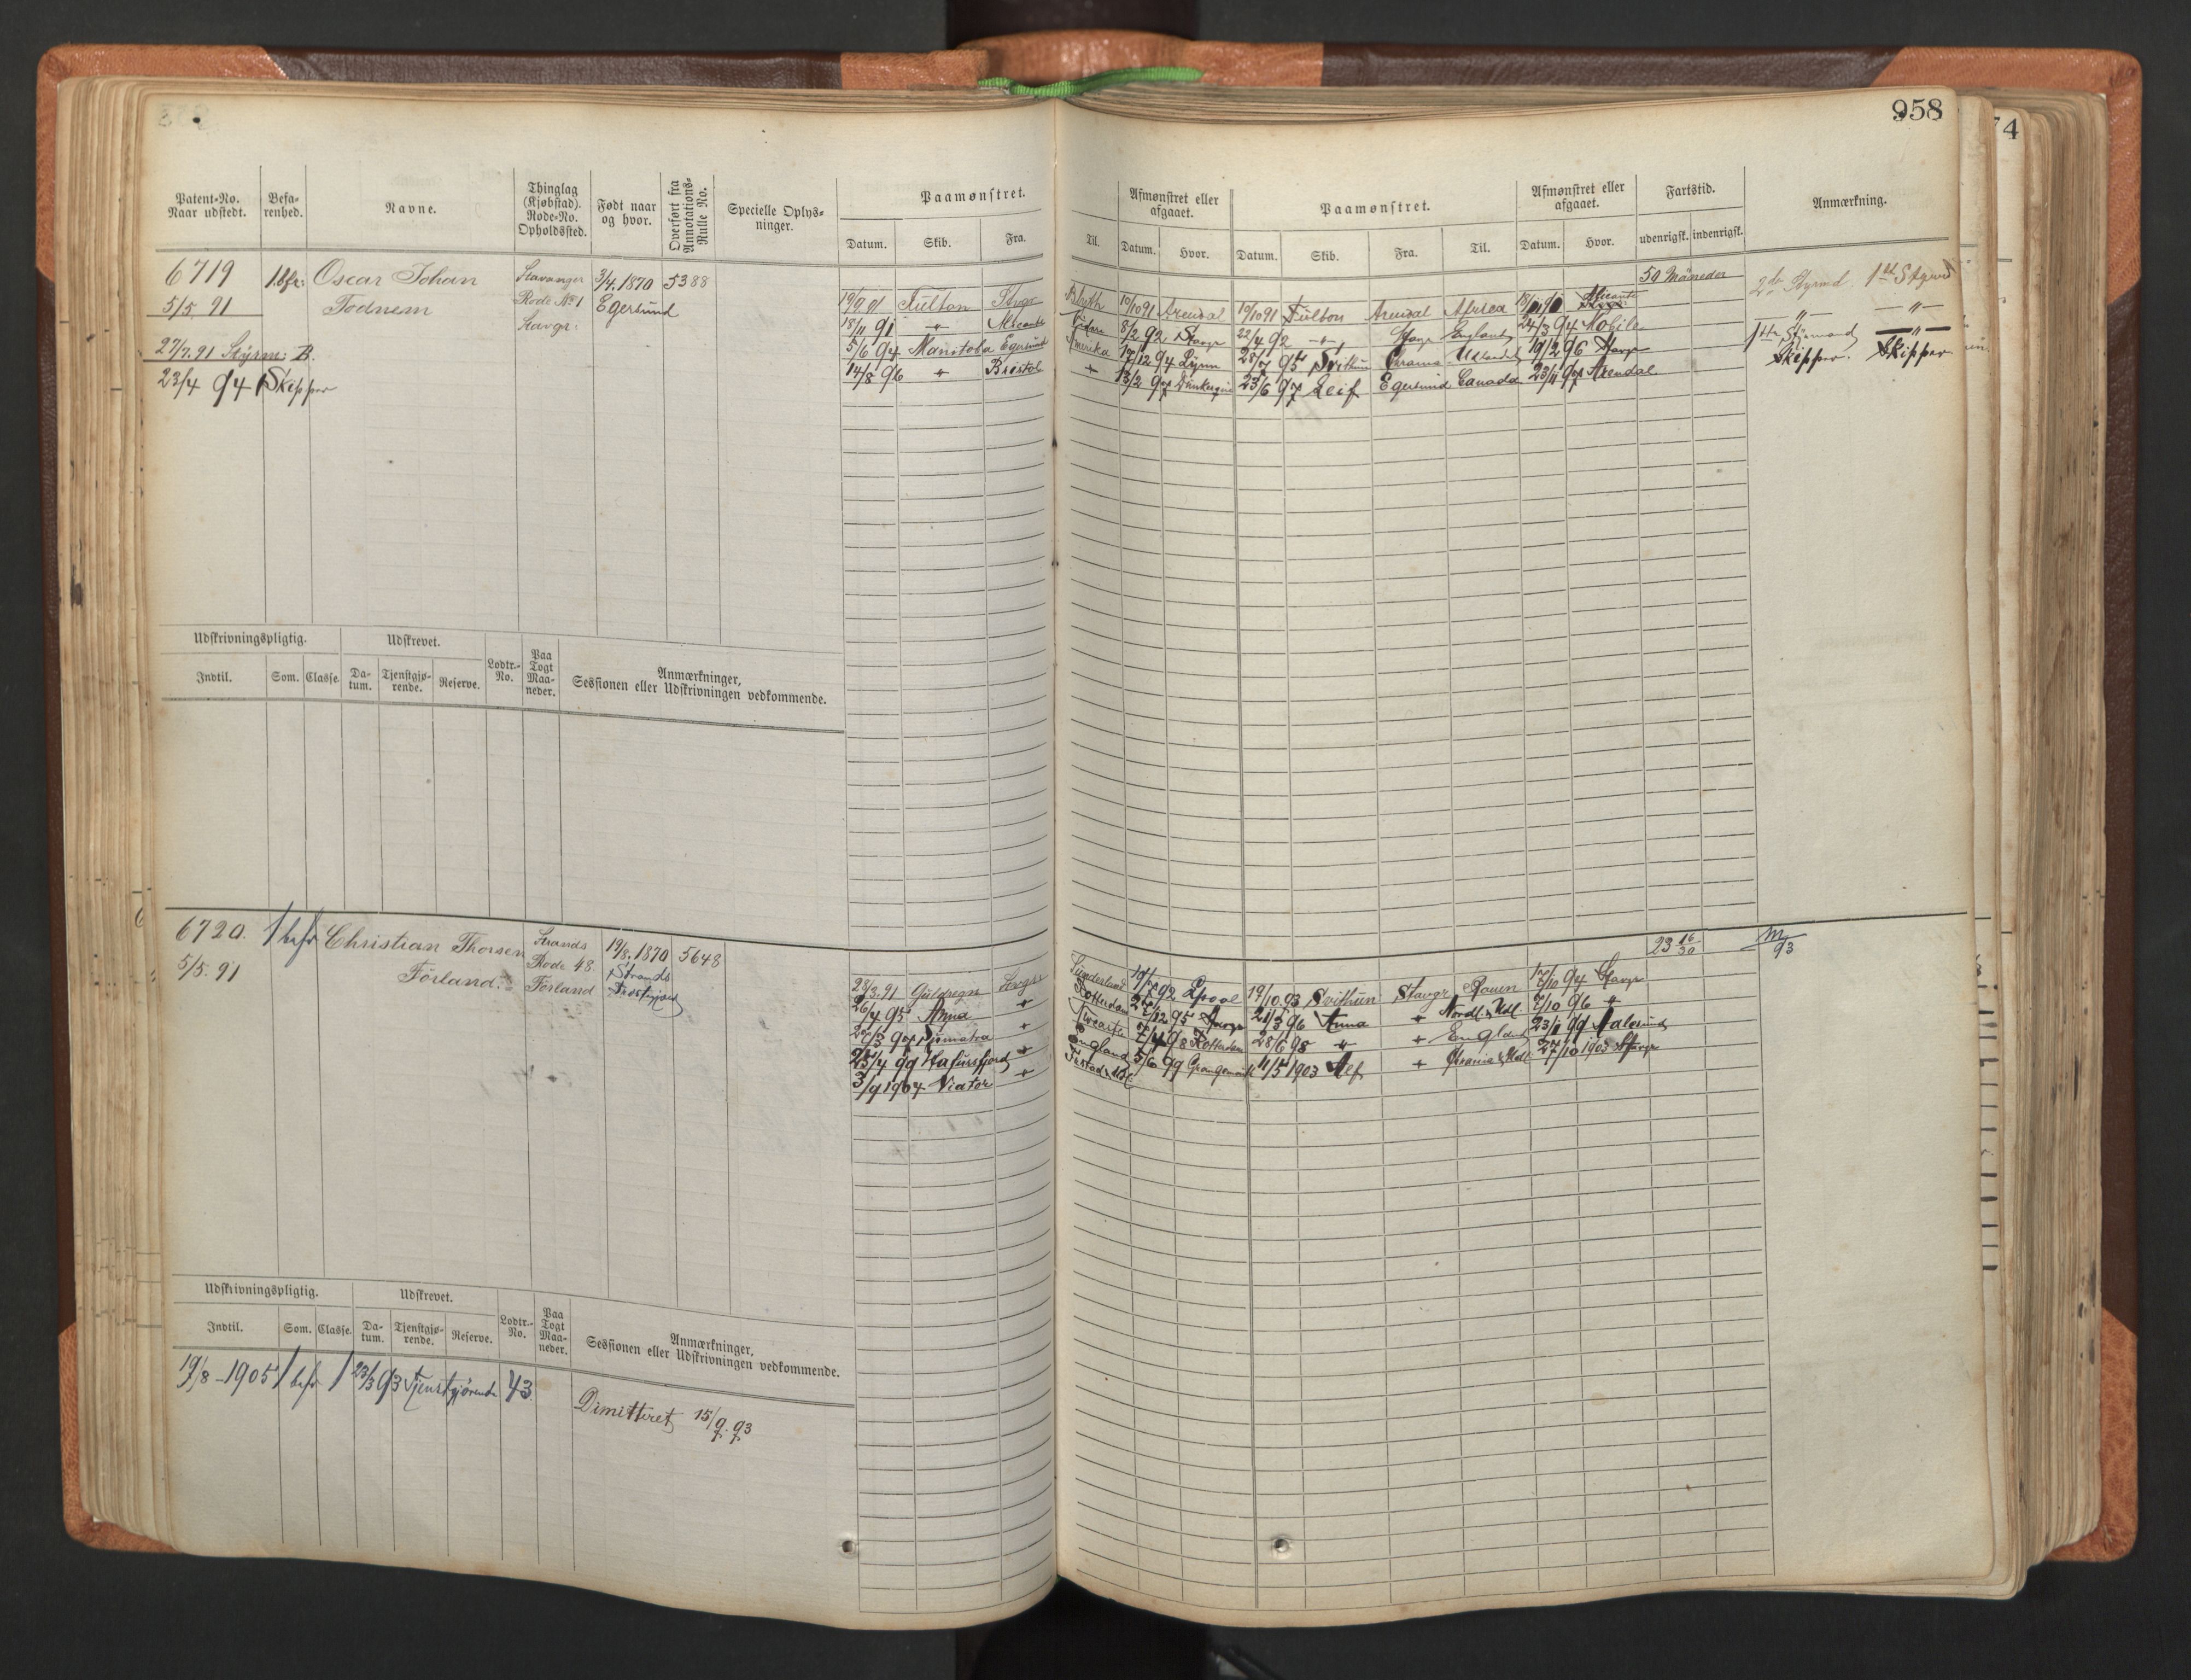 958
74
Patent-No. Naar udstedt.
Befarenhed.
Navne.
Thinglag (Kjøbstad). Rode-No. Opholdssted.
Født naar og hvor.
Overført fra Annotations-Rulle No.
Specielle Oplysninger.
Paamønstret.
Datum. Skib. Fra. Til.
Afmønstret eller afgaaet.
Datum. Hvor.
Paamønstret.
Datum. Skib. Fra. Til.
Afmønstret eller afgaaet.
Datum. Hvor.
Fartstid.
udenrigsk. indenrigsk.
Anmærkning.
6719 1.Bfr: Oscar Johan Stavanger 3/4.1870 5388
5/5. 91 Todnem Rode No 1 Egersund
Stavgr:
27/7. 91 Styrm: B.
23/4 94 Skipper
50 Måneder
2de Styrmd. 1st Styrmd
19/9 91 Fulton Stvgr Blyth 10/10 91 Arendal 19/10 91 Fulton Arendal Africa Alicante
18/11 91 Alicante 8/2 92 Stavgr 22/4 92 Stavgr England 24/3 94 Mobile
5/6 94 Manitoba Egersund Amerika 17/12 94 Lynn 28/7 95 Svithun Chrania Udlandet 19/2 96 Stavgr
14/8 96 Bristol 13/2 97 Dunkerque 23/6 97 Leif Egersund Canada 23/11 97 Arendal
Styrmand
Skipper. Skipper
Udskrivningspligtig.
Indtil. Som. Classe.
Udskrevet.
Datum. Tjenstgjørende. Reserve.
Lodtr.-No.
Paa Togt Maaneder.
Anmærkninger, Sessionen eller Udskrivningen vedkommende.
6720. 1 befr Christian Thorsen Strands 19/8. 1870 5648
5/5. 91 Förland. Rode 48 Strands
Förland
23 16/30
28/3. 91 Guldregn Stvgr Sunderland 92 Lpool 19/10 93 Svithun Stavgr Rouen 17/10 94 Stavgr
26/4 95 Anna Rotterdam 95 Stavgr 21/3 96 Anna Nordl. & Udl. 7/10 96
97 Sumatra 98 Rotterdam 28/6 98 England 23/11 99 Aalesund
25/4 99 Hafursfjord England 5/6 99 Grangemouth 11/5 1903 Alf 27/10 1903 Stavgr
3/9 1904 Viator
Udskrivningspligtig.
Indtil. Som. Classe.
Udskrevet.
Datum. Tjenstgjørende. Reserve.
Lodtr.-No.
Paa Togt Maaneder.
Anmærkninger, Sessionen eller Udskrivningen vedkommende.
19/8 - 1905 1 befr 1 23/3 93 Tjenstgjørende 43
Dimitteret 15/9. 93